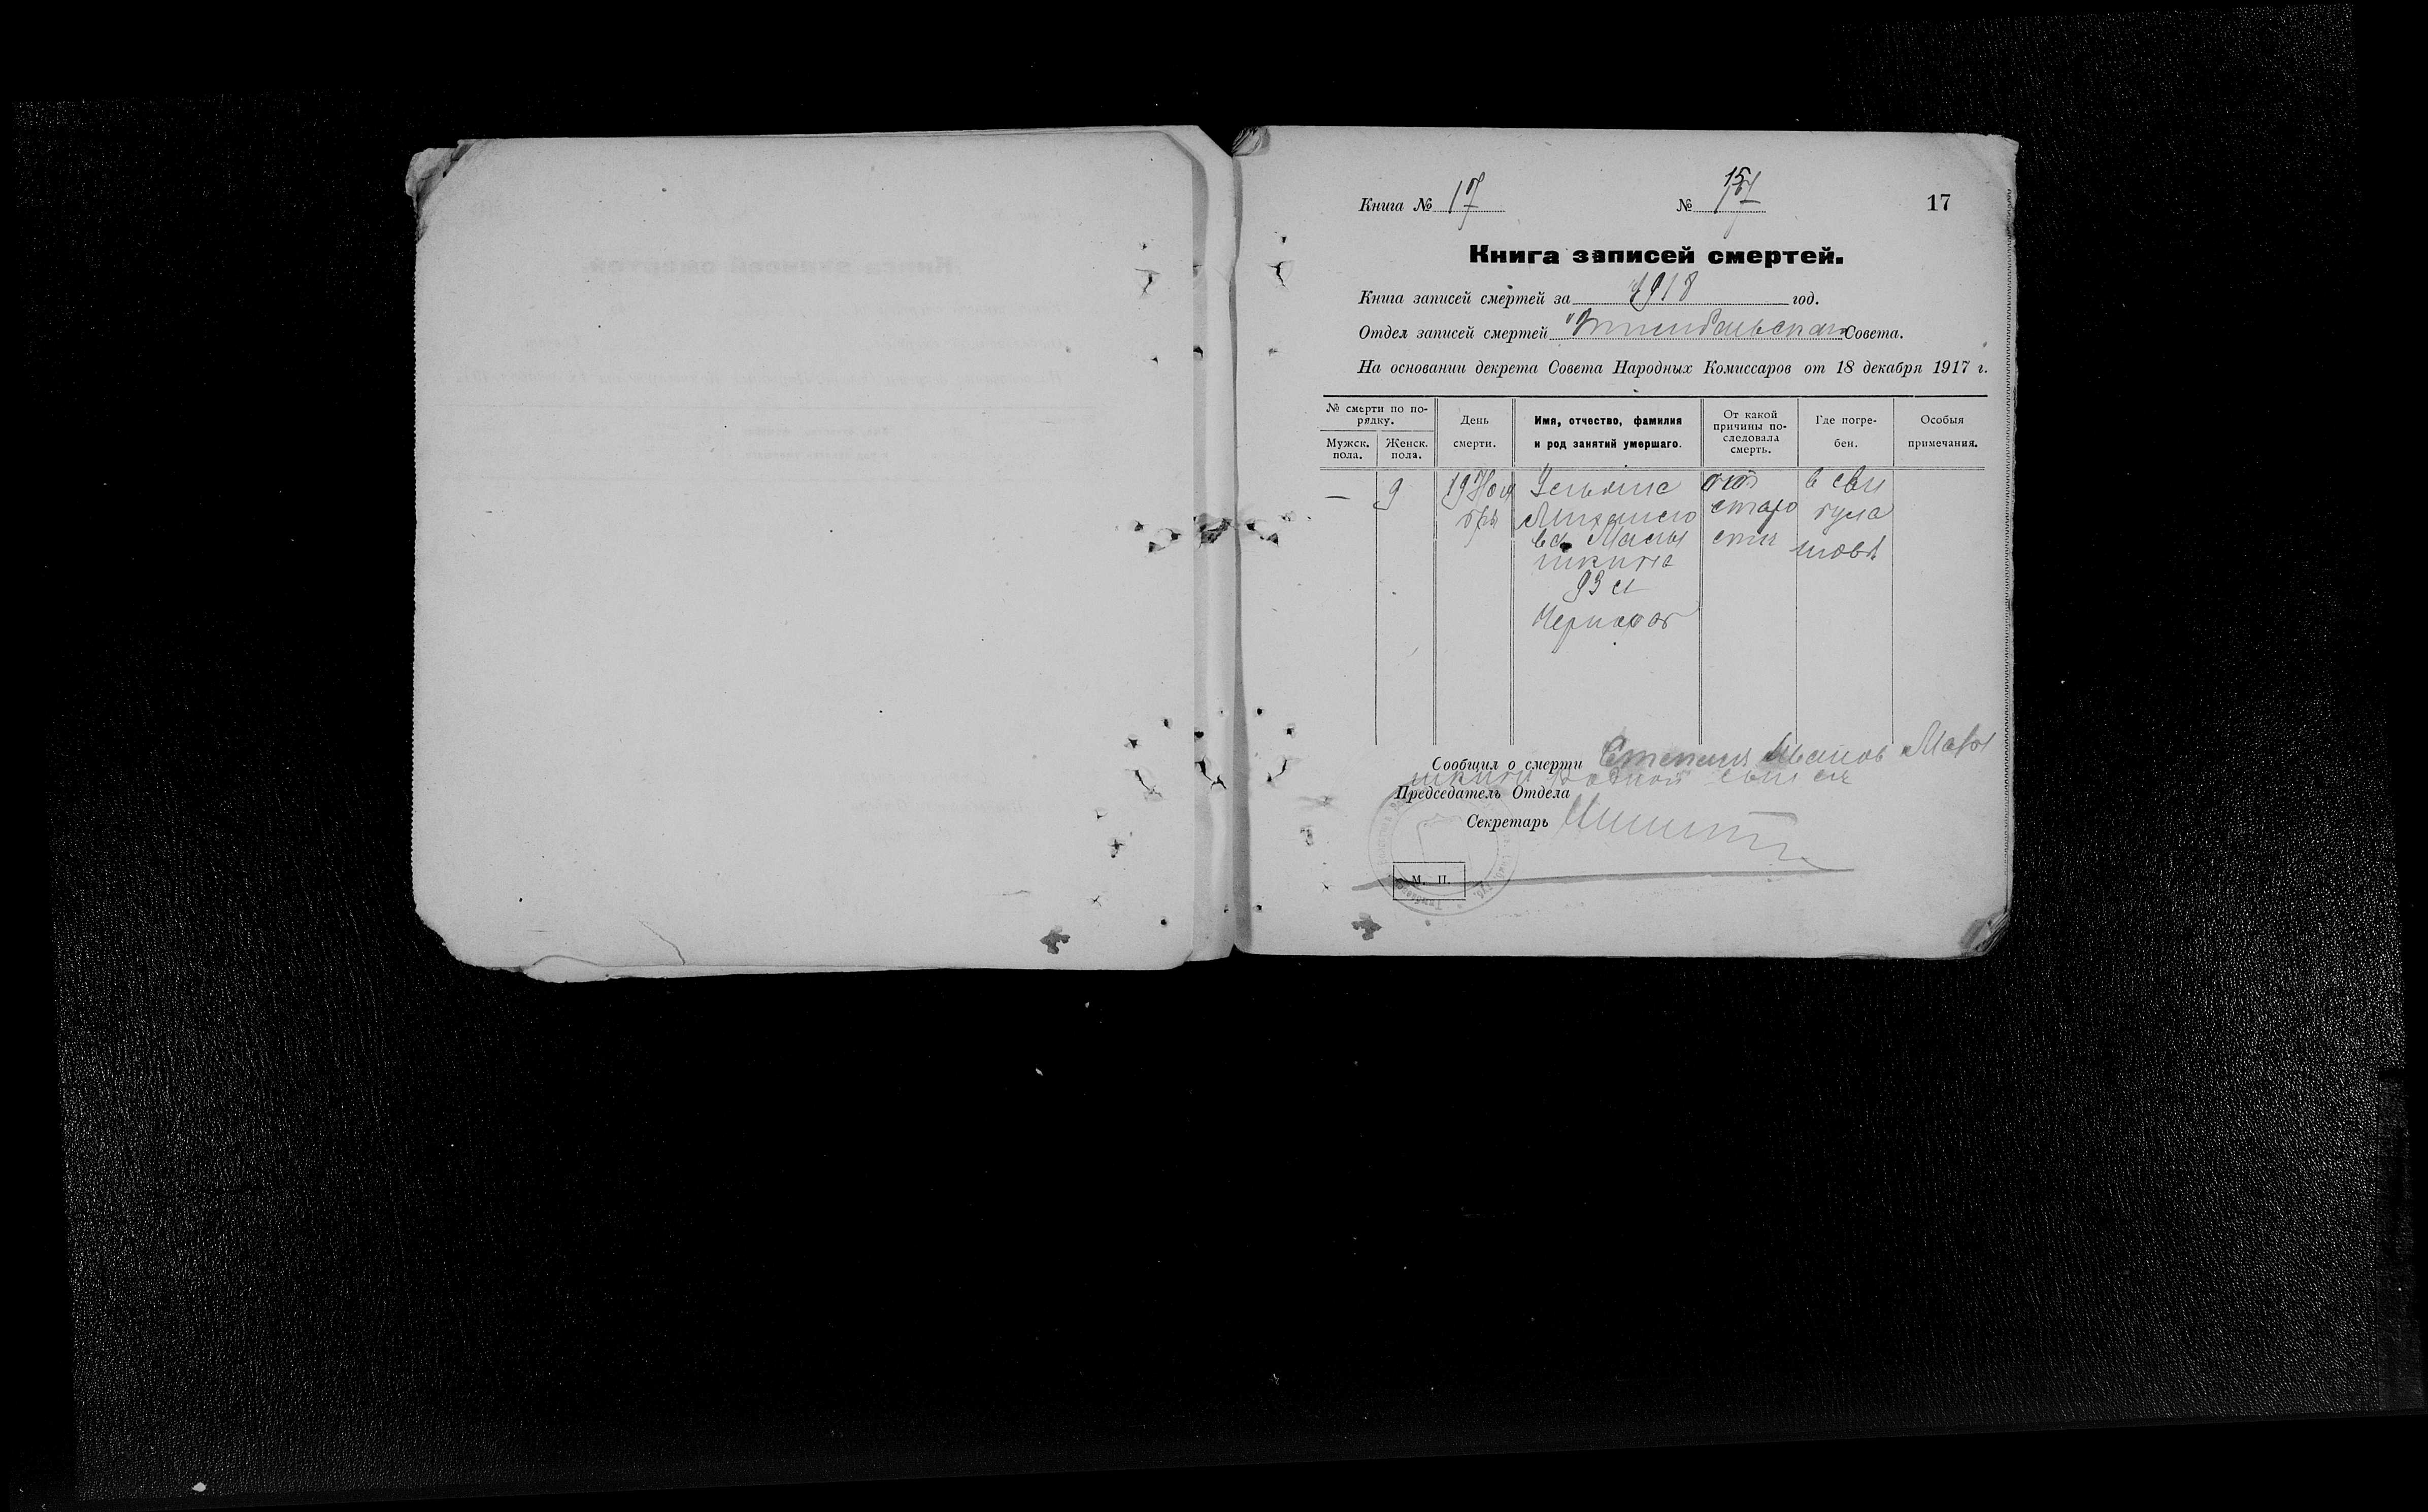 Книга № 17 № 17 15
17
Книга записей смертей.
Книга записей смертей за 1918 год.
Отдел записей смертей Совета.
На основании декрета Совета Народных Комиссаров от 18 декабря 1917 г.
№ смерти по по-
рядку.
Мужск.
пола.
Женск.
пола.
День
смерти.
Имя, отчество, фамилия
и род занятий умершаго.
От какой
причины по-
следовала
смерть.
Где погре-
бен.
Особыя
примечания.
—
9
19 Ноя
бря
Ульяна
Михаило
ва
шкина
93 л
от
старо
сти
в
Сообщил о смерти Степан Иванов
шкин родной сын ея
Председатель Отдела
Секретарь
М. П.